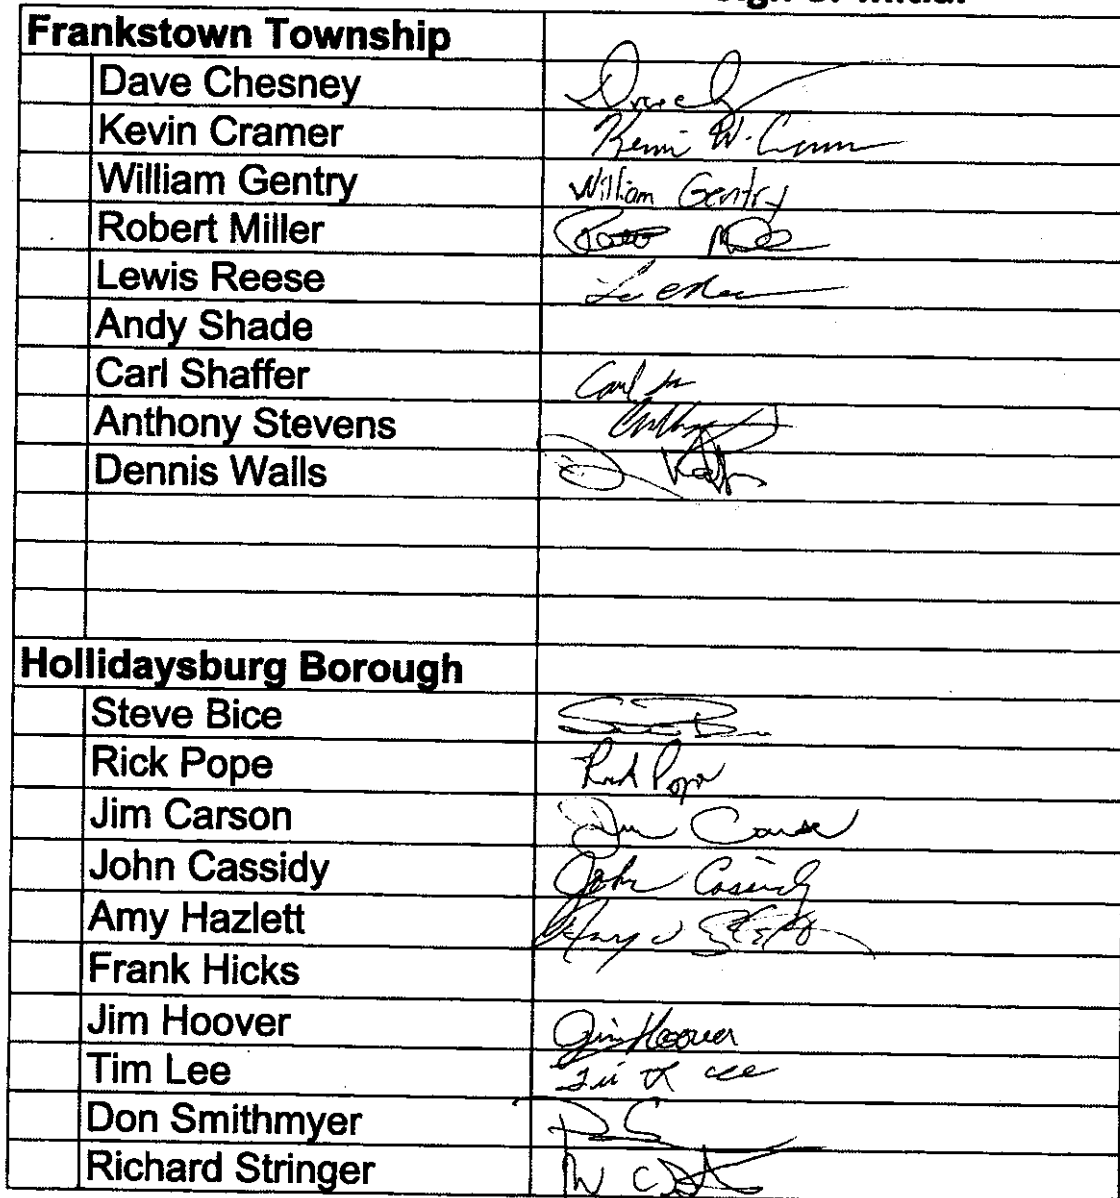 Frankstown Township
Dave Chesney
Kevin Cramer Kevin W. Cramer
William Gentry William Gentry
Robert Miller
Lewis Reese
Andy Shade
Carl Shaffer Carl
Anthony Stevens
Dennis Walls
Hollidaysburg Borough
Steve Bice
Rick Pope Rick Pope
Jim Carson Jim Carson
John Cassidy John Cassidy
Amy Hazlett Amy
Frank Hicks
Jim Hoover Jim Hoover
Tim Lee
Don Smithmyer
Richard Stringer